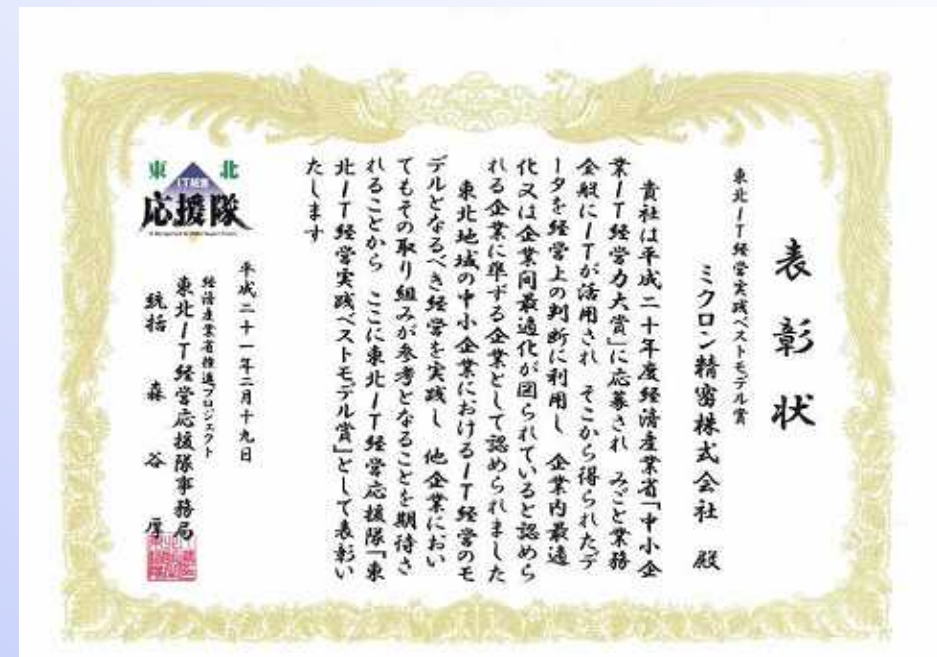 表彰状
東北IT経営実践ベストモデル賞
ミクロン精密株式会社 殿
貴社は平成二十年度経済産業省「中小企
業IT経営力大賞」に応募され みごと業務
全般にITが活用され そこから得られたデ
ータを経営上の判断に利用し 企業内最適
化又は企業間最適化が図られていると認めら
れる企業に準ずる企業として認められました
東北地域の中小企業におけるIT経営のモ
デルとなるべき経営を実践し 他企業におい
てもその取り組みが参考となることを期待さ
れることから ここに東北IT経営応援隊「東
北IT経営実践ベストモデル賞」として表彰い
たします
平成二十一年二月十九日
経済産業省推進プロジェクト
東北IT経営応援隊事務局
統括 森谷 厚
東北
IT経営
応援隊